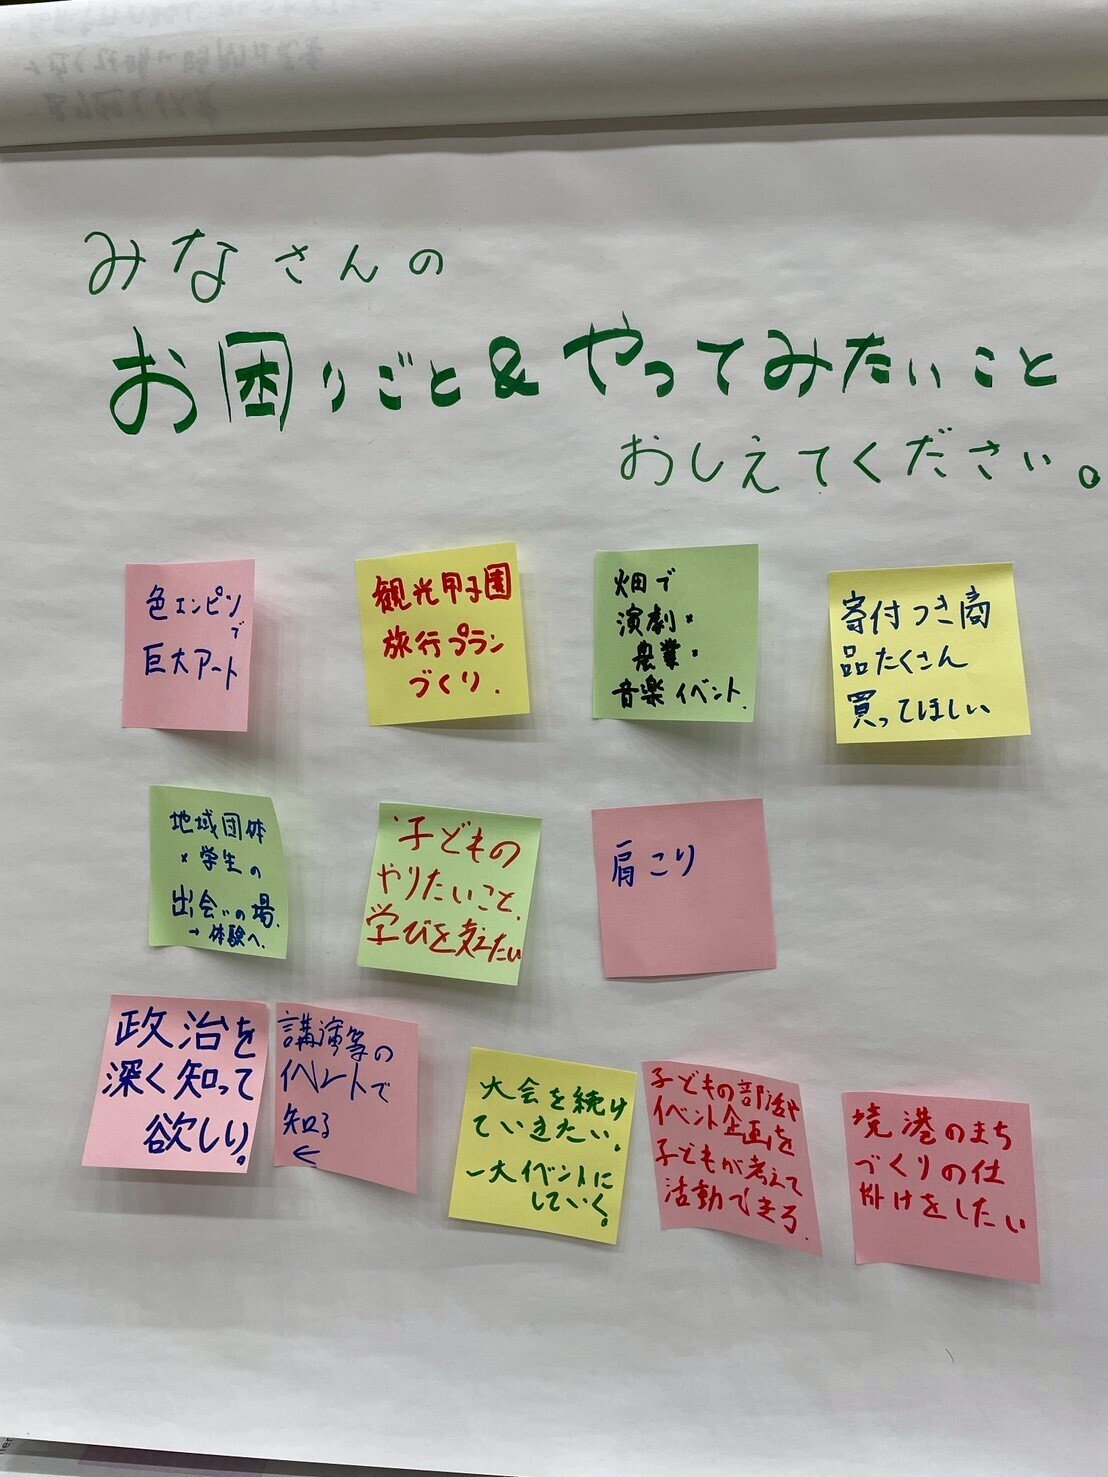 みなさんの
お困りごと&やってみたいこと
おしえてください。
色エンピツ
で
巨大アート
観光甲子園
旅行プラン
づくり.
畑で
演劇×
農業×
音楽イベント.
寄付つき商
品たくさん
買ってほしい
地域団体
×学生の
出会いの場.
→体験へ.
子どもの
やりたいこと、
学びを支えたい
肩こり
政治を
深く知って
欲しい!
講演等の
イベントで
知る
←
大会を続け
ていきたい.
一大イベントに
していく!
子どもの部活や
イベント企画を
子どもが考えて
活動できる.
境港のまち
づくりの仕
掛けをしたい